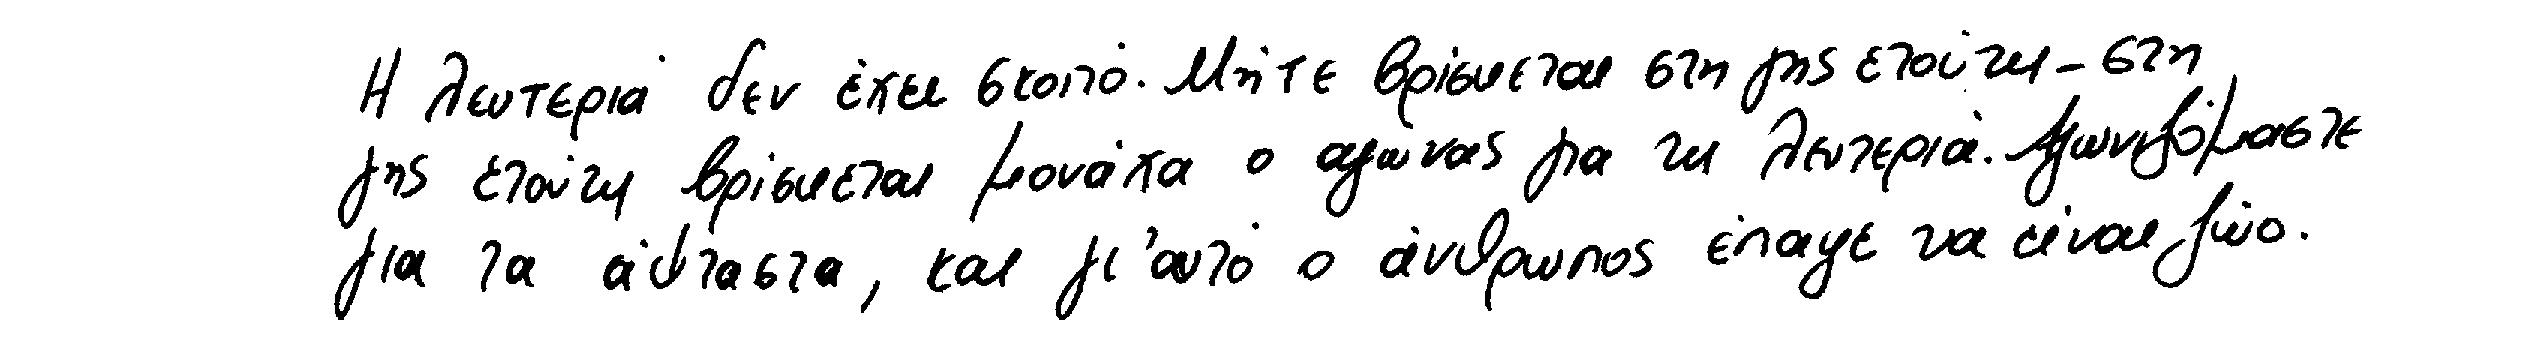 Η λευτεριά δεν έχει σκοπό. Μήτε βρίσκεται στη γης ετούτη - στη
γης ετούτη βρίσκεται μονάχα ο αγώνας για τη λευτεριά. Αγωνιζόμαστε
για τα άφταστα, και γι' αυτό ο άνθρωπος έπαψε να είναι ζώο.